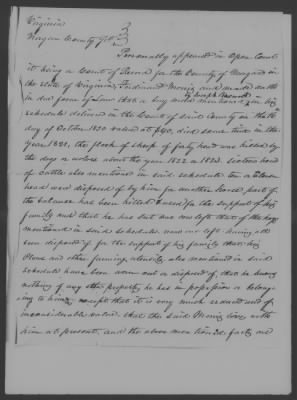 Virginia
Morgan County Sct.
Personally appeared in Open Court
it being a Court of Record for the County of Morgan in
the State of Virginia Ferdinand and made oath
in due form of Law that a bay mare mentioned in his
schedule delivered in the Court of said County on the
day of October 1820 valued at $40, died some time in the
year 1821, the flock of sheep of forty head was killed by
the dogs & wolves about the year 1822 & 1823. Sixteen head
of cattle also mentioned in said schedule ten or eleven
head were disposed of by him for another part of
the balance has been killed & used for the support of his
family and that he has but one cow left that of the hogs
mentioned in said schedule none are left having all
been disposed of for the support of his family that his
Plows and other farming utensils also mentioned in said
schedule have been worn out or disposed of, that he having
nothing of any other property he has in possession or belong-
ing to him, except that it is very much reduced and of
inconsiderable value. that the said lives with
him at present, and the above mentioned facts are